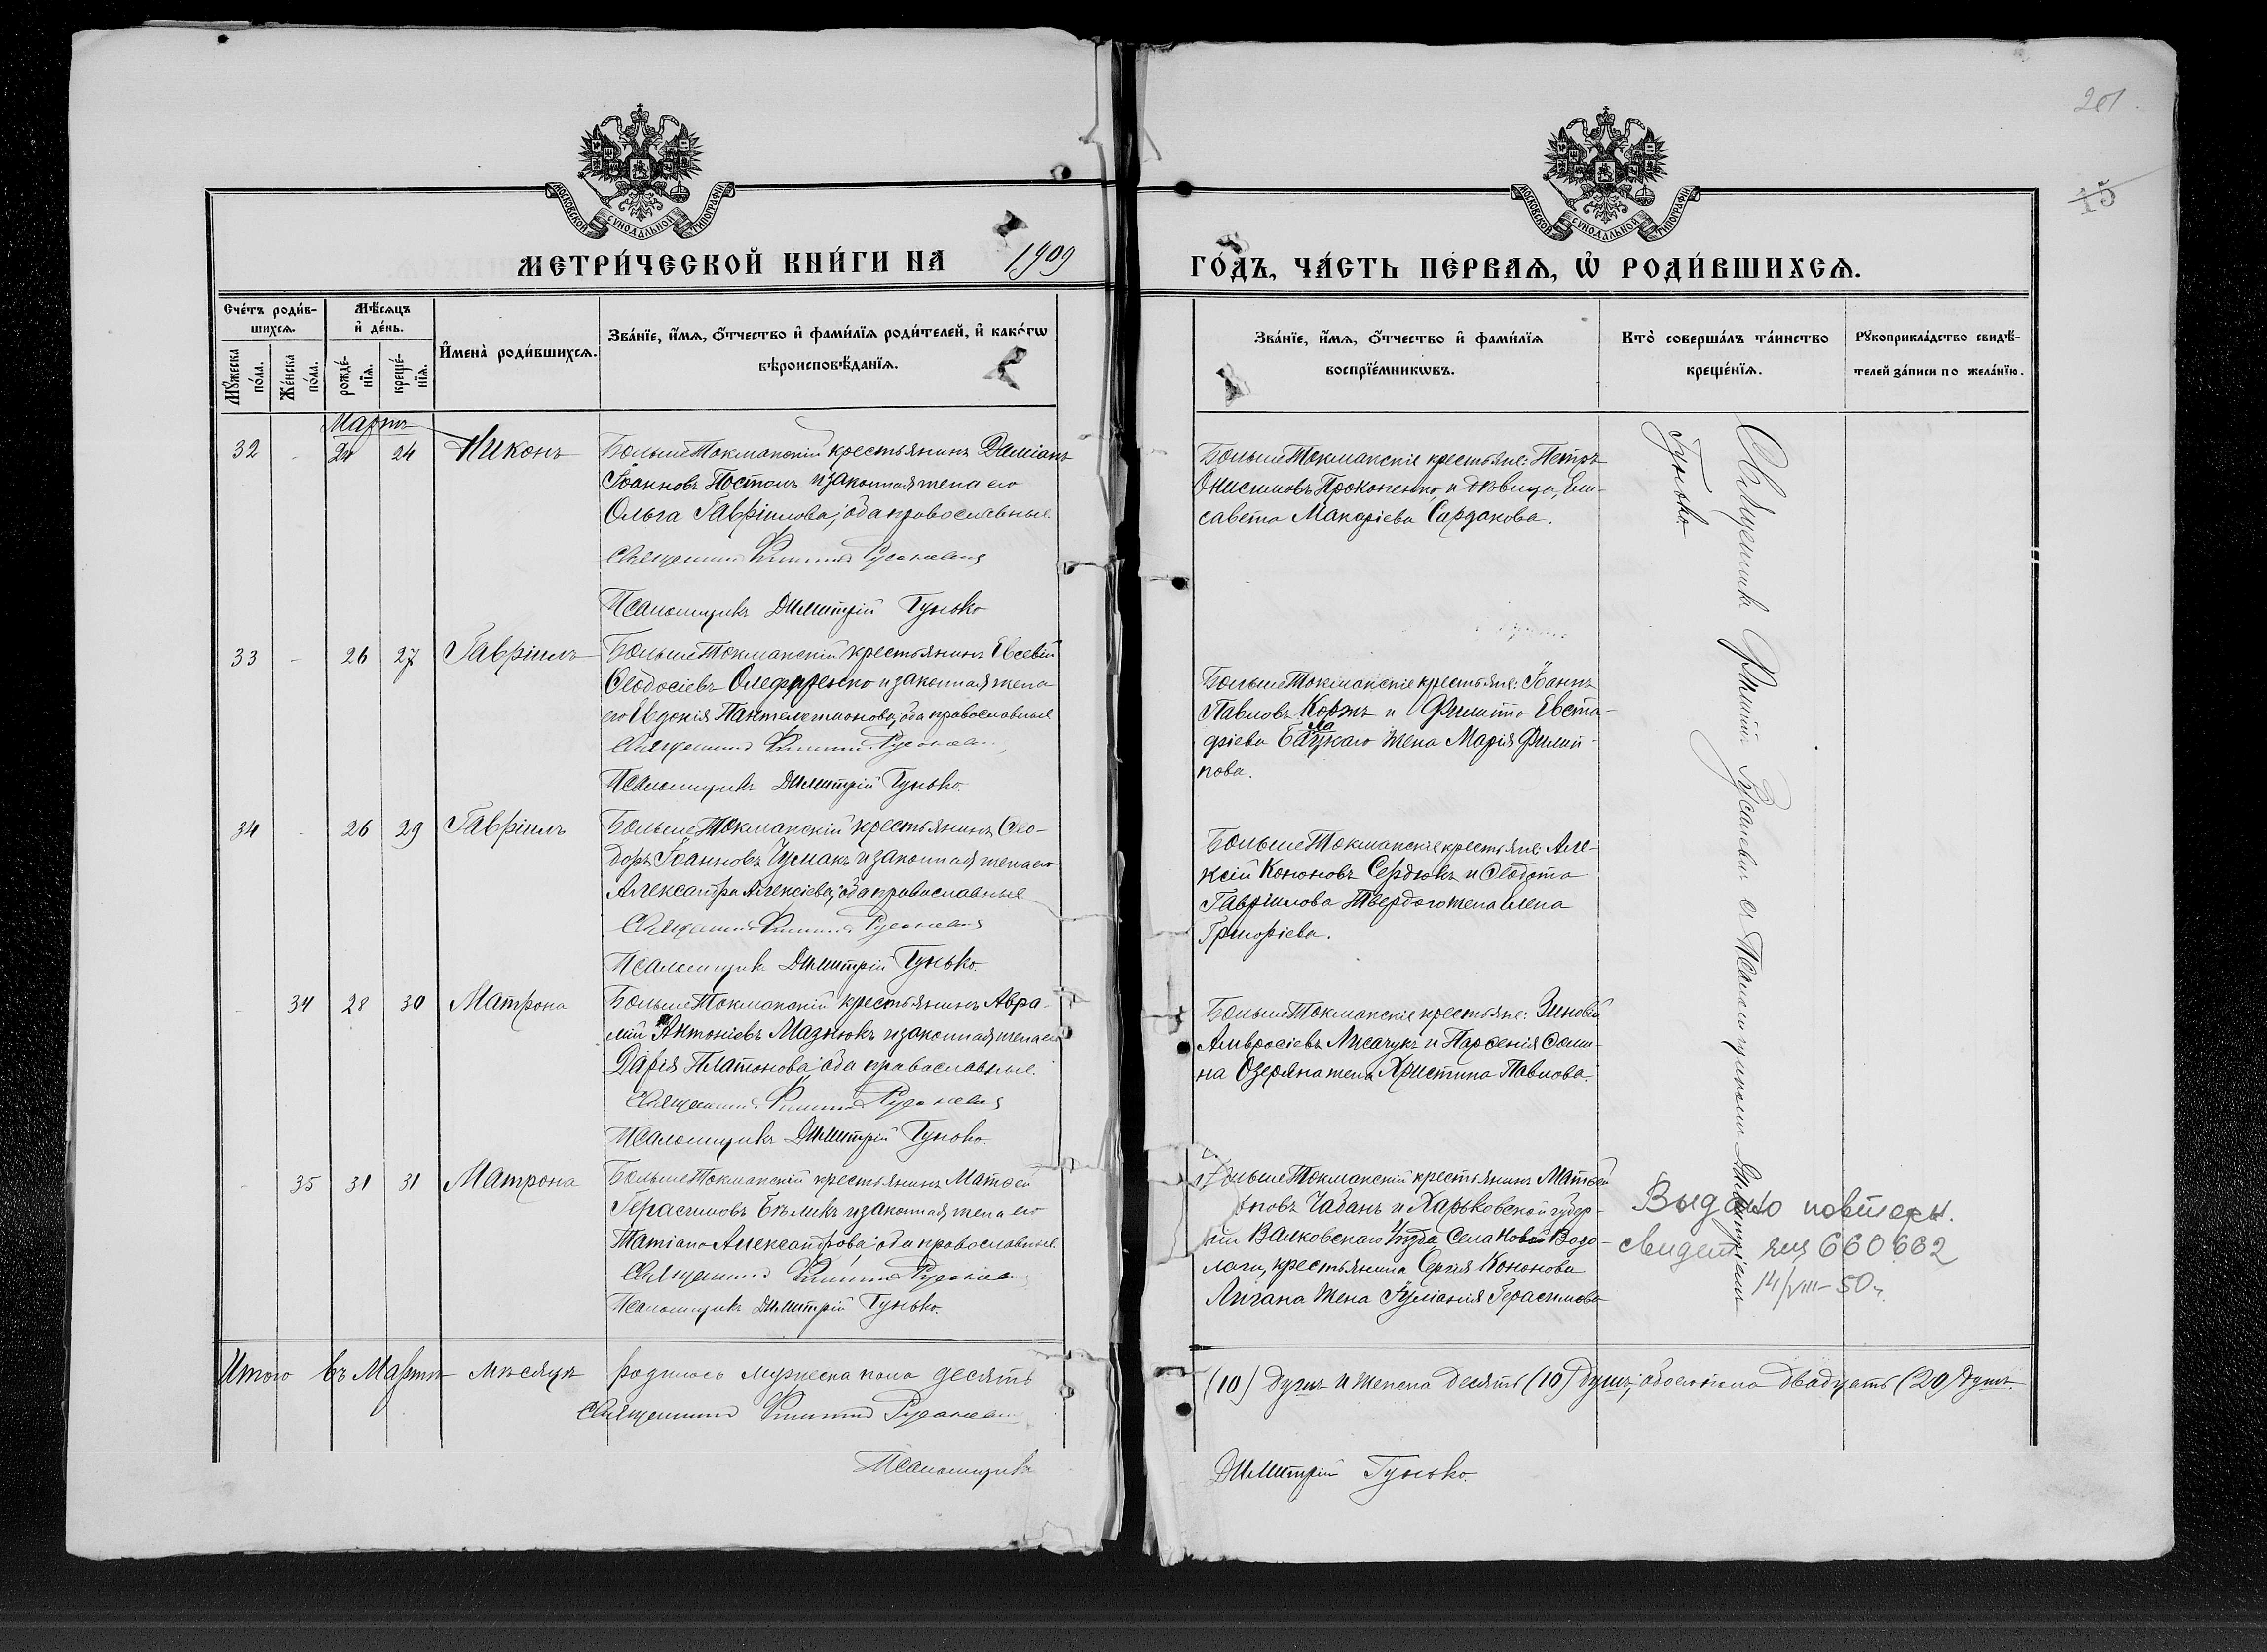 201
15
МОСКОВСКОЙ СУНОДАЛЬНОЙ ТИПОГРАФІИ
МОСКОВСКОЙ СУНОДАЛЬНОЙ ТИПОГРАФІИ
МЕТРИ́ЧЕСКОЙ КНИ́ГИ НА 1909
ГО́ДЪ, ЧА́СТЬ ПЕ́РВАѦ, Ѡ҆ РОДИ́ВШИХСѦ.
Сче́тъ роди́в-
шихсѧ.
Мѹ́жеска по́ла.
Же́нска по́ла.
Мѣ́сѧцъ
и҆ де́нь.
рожде́-
нїѧ.
креще́-
нїѧ.
И҆мена̀ роди́вшихсѧ.
Зва́нїе, и҆́мѧ, ѻ҆́тчество и҆ фами́лїѧ роди́телей, и҆ како́гѡ
вѣроисповѣ́данїѧ.
Зва́нїе, и҆́мѧ, ѻ҆́тчество и҆ фами́лїѧ
воспрїе́мникѡвъ.
Кто̀ соверша́лъ та́инство
креще́нїѧ.
Рѹкоприкла́дство свидѣ́-
телей за́писи по жела́нїю.
Мартъ
32 - 24 24 Никонъ
БольшеТокмакскій крестьянинъ Даміанъ
Іоанновъ Постолъ и законная жена его
Ольга Гавріилова, оба православные.
Священникъ Филиппъ Русаневичъ
Псаломщикъ Димитрій Гунько
БольшеТокмакскіе крестьяне: Петръ
Онисимовъ Прокопенко, и дѣвица, Ели-
савета Макаріева Сардакова.
33 - 26 27 Гавріилъ
БольшеТокмакскій крестьянинъ Евсевій
Ѳеодосіевъ Олефиренко и законная жена
его Евдокія Пантелеимонова, оба православные
Священникъ Филиппъ Русаневичъ
Псаломщикъ Димитрій Гунько.
БольшеТокмакскіе крестьяне: Іоаннъ
Павловъ Коржъ и Филиппа Евста-
фіева жена Марія Филип-
пова.
34 - 26 29 Гавріилъ
БольшеТокмакскій крестьянинъ Ѳео-
доръ Іоанновъ Чумакъ и законная жена его
Александра Алексіева, оба православные
Священникъ Филиппъ Русаневичъ
Псаломщикъ Димитрій Гунько.
БольшеТокмакскіе крестьяне: Але-
ксій Кононовъ Сердюкъ и Ѳеодота
Гавріилова Твердого жена Елена
Григоріева.
- 34 28 30 Матрона
БольшеТокмакскій крестьянинъ Авра-
мій Антоніевъ Мазнюкъ и законная жена его
Дарія Платонова оба православные.
Священникъ Филиппъ Русаневичъ
Псаломщикъ Димитрій Гунько.
БольшеТокмакскіе крестьяне: Зиновій
Амвросіевъ Лисачукъ и Парѳенія Ѳоми-
на Озеряна жена Христина Павлова.
- 35 31 31 Матрона
БольшеТокмакскій крестьянинъ Матѳей
Герасимовъ Бѣликъ и законная жена его
Татіана Александрова оба православные.
Священникъ Филиппъ Русаневичъ
Псаломщикъ Димитрій Гунько.
БольшеТокмакскій крестьянинъ Матѳей
Чабанъ и Харьковской губер-
ніи Валковскаго Уѣзда Села Новой Водо-
лаги, крестьянина Сергія Кононова
Лигана жена Іуліанія Герасимова
Священникъ Филиппъ Русаневичъ съ Псаломщикомъ Димитріемъ
Гунько.
Выдано повторн.
свидет 660662
14/VIII-50 г.
Итого въ Мартѣ мѣсяцѣ родилось мужеска пола десять
(10) душъ и женска десять (10) душъ, обоего пола двадцать (20) душъ.
Священникъ Филиппъ Русаневичъ
Псаломщикъ Димитрій Гунько.